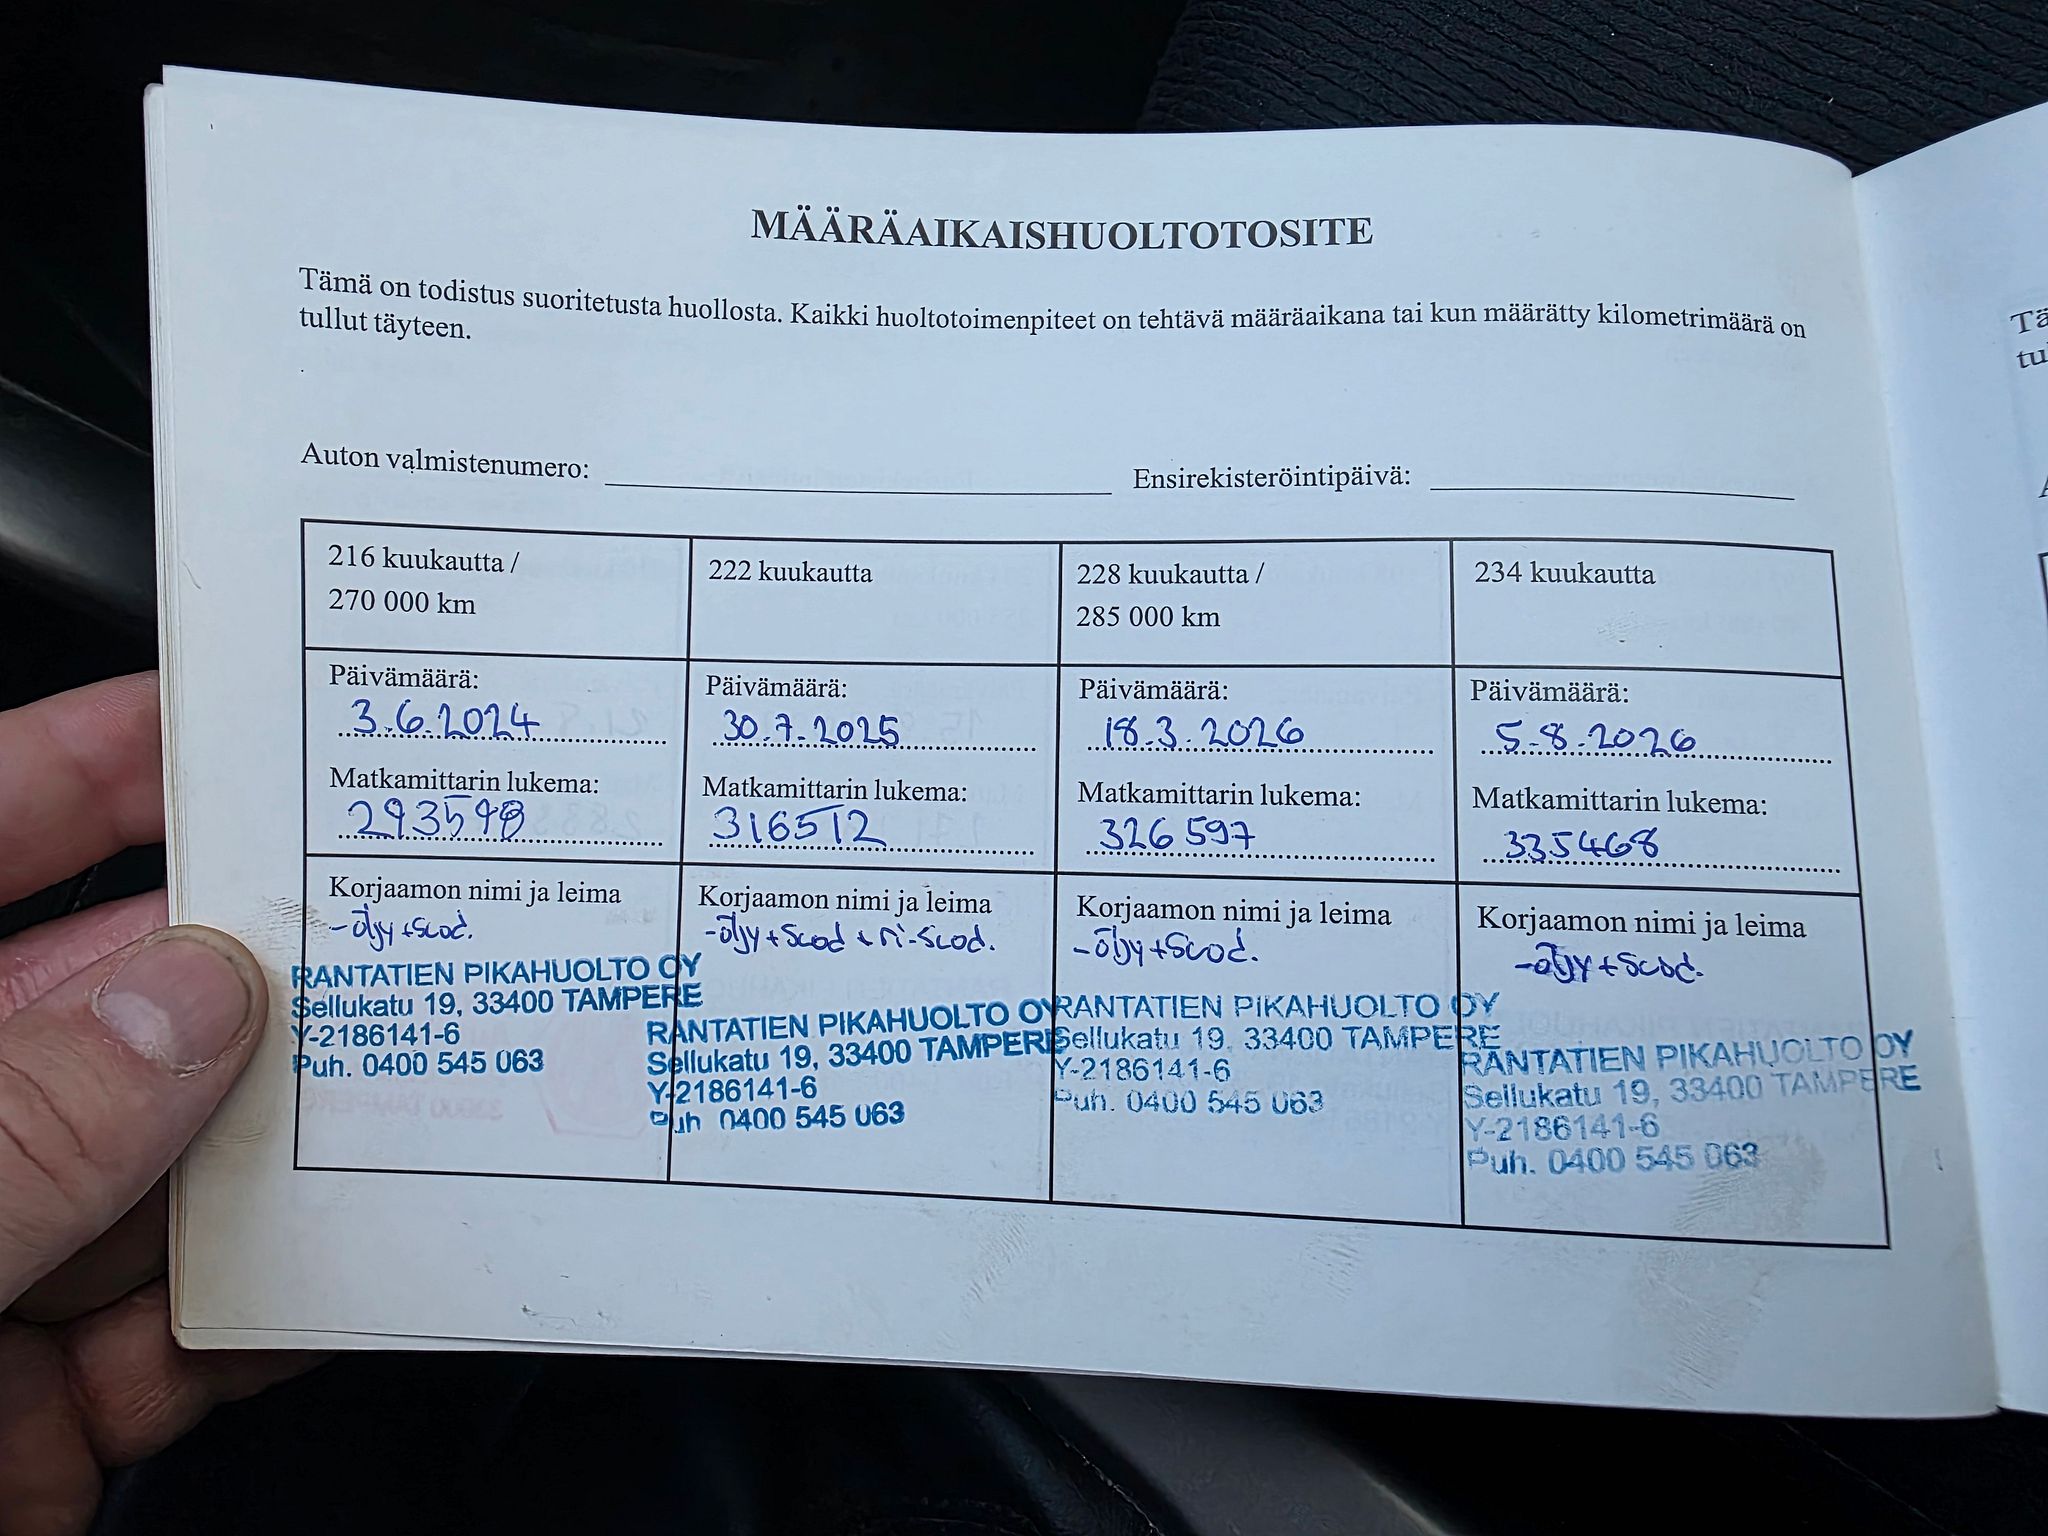 MÄÄRÄAIKAISHUOLTOTOSITE
Tämä on todistus suoritetusta huollosta. Kaikki huoltotoimenpiteet on tehtävä määräaikana tai kun määrätty kilometrimäärä on
tullut täyteen.
Auton valmistenumero:
Ensirekisteröintipäivä:
216 kuukautta /
270 000 km
Päivämäärä:
3.6.2024
Matkamittarin lukema:
Korjaamon nimi ja leima
-öljy+suod.
RANTATIEN PIKAHUOLTO OY
Sellukatu 19, 33400 TAMPERE
Y-2186141-6
Puh. 0400 545 063
222 kuukautta
Päivämäärä:
30.7.2025
Matkamittarin lukema:
316512
Korjaamon nimi ja leima
-öljy+suod + ri-suod.
RANTATIEN PIKAHUOLTO OY
Sellukatu 19, 33400 TAMPERE
Y-2186141-6
Puh 0400 545 063
228 kuukautta /
285 000 km
Päivämäärä:
18.3.2026
Matkamittarin lukema:
326 597
Korjaamon nimi ja leima
-öljy+suod.
RANTATIEN PIKAHUOLTO OY
Sellukatu 19, 33400 TAMPERE
Y-2186141-6
Puh. 0400 545 063
234 kuukautta
Päivämäärä:
5.8.2026
Matkamittarin lukema:
335468
Korjaamon nimi ja leima
-öljy+suod.
RANTATIEN PIKAHUOLTO OY
Sellukatu 19, 33400 TAMPERE
Y-2186141-6
Puh. 0400 545 063